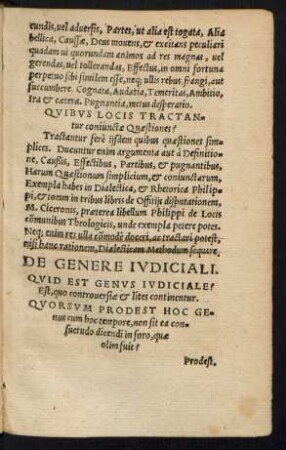 cundis, vel adversis, Partes, ut alia est togata, Alia
bellica, Caussæ, Deus mouens, & excitans peculiari
quadam ui quorundam animos ad res magnas, uel
gerendas, uel tollerandas, Effectus, in omni fortuna
perpetuo sibi similem esse, neq; ullis rebus frangi, aut
succumbere. Cognata, Audatia, Temeritas, Ambitio,
Ira & cætera. Pugnantia, metus desperatio.
QVIBVS LOCIS TRACTAN-
tur coniunctæ Quæstiones?
Tractantur ferè ijsdem quibus quæstiones sim-
plices. Ducuntur enim argumenta aut à Definitio-
ne, Caussis, Effectibus, Partibus, & pugnantibus,
Harum Quæstionum simplicium, & coniunctarum,
Exempla habes in Dialectica, & Rhetorica Philip-
pi, & totum in tribus libris de Officijs disputationem,
M. Ciceronis, præterea libellum Philippi de Locis
cõmunibus Theologicis, unde exempla petere potes.
Neq; enim res ulla cõmodè doceri, ac tractari potest,
nisi hanc rationem, Dialecticam Methodum sequare.
DE GENERE IVDICIALI.
QVID EST GENVS IVDICIALE?
Est, quo controuersiæ & lites continentur.
QVORSVM PRODEST HOC GE-
nus cum hoc tempore, non sit ea con-
suetudo dicendi in foro, quæ
olim fuit?
Prodest,